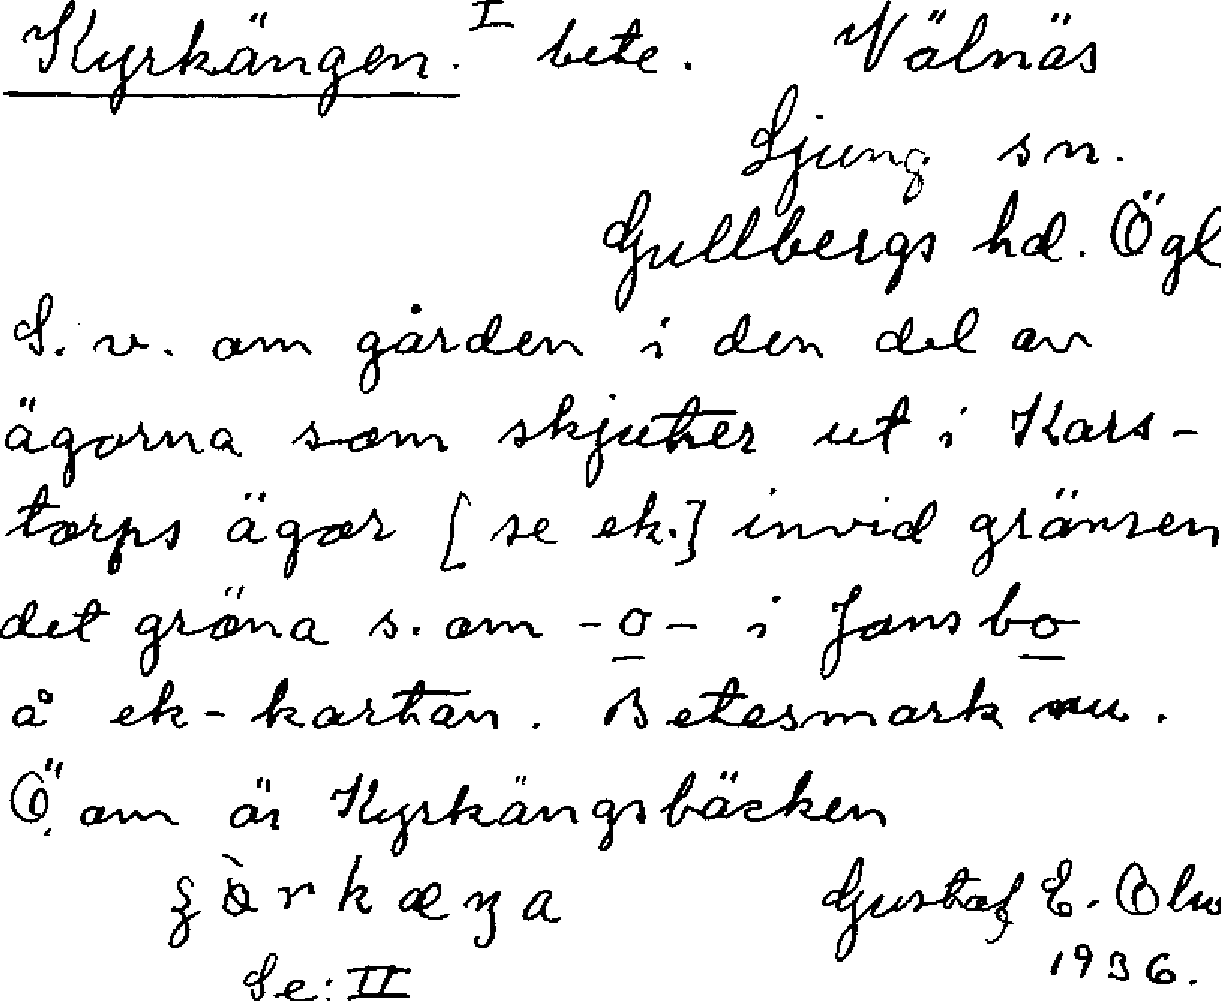 Kyrkängen. I bete. Välnäs
Ljung sn.
Gullbergs hd. Ögl
S. v. om gården i den del av
ägorna som skjuter ut i Kars-
torps ägor [se ek.] invid gränsen
det gröna s. om -o- i Jonsbo
å ek-kartan. Betesmark nu.
Ö. om är Kyrkängsbäcken
Gustaf E. Olss
1936.
Se: II